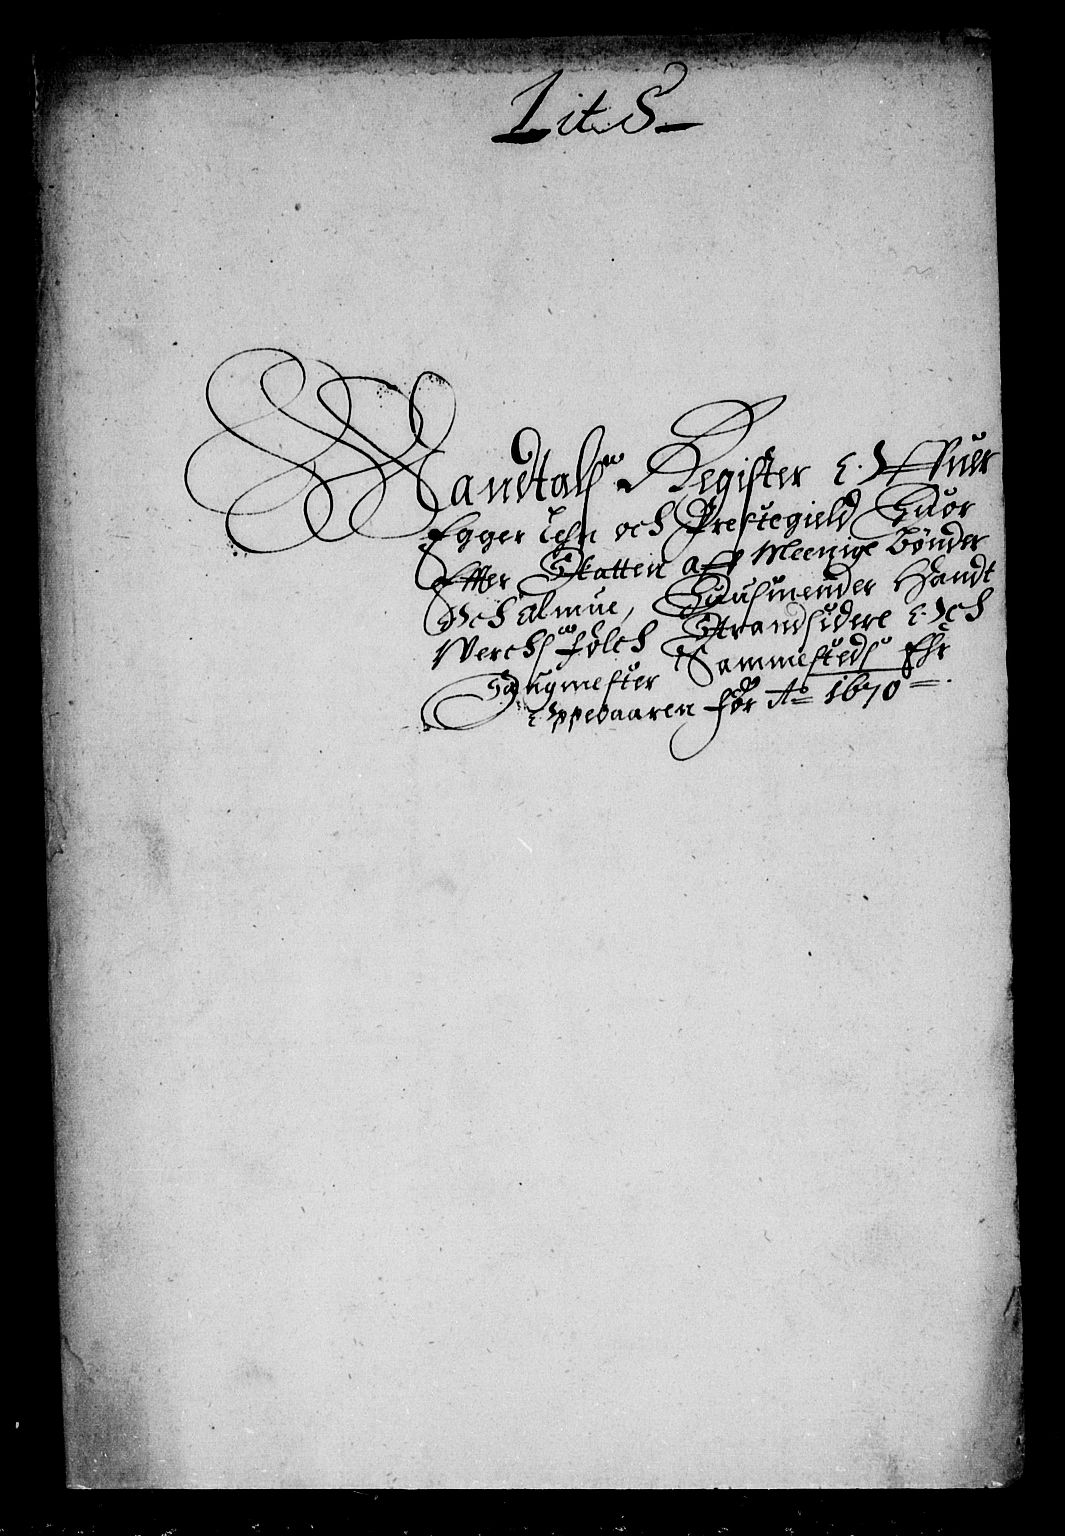 Lit. S
Mandtals Register Offuer
Egger Lehn och Prestegield Huor
Effter Skatten aff Meenige Bønder
Och Almue, Huusmender Handt
Werchs folch Strandsidere Och
Saugmester Sammesteds Ehr
Oppebaaren for Ao 1670